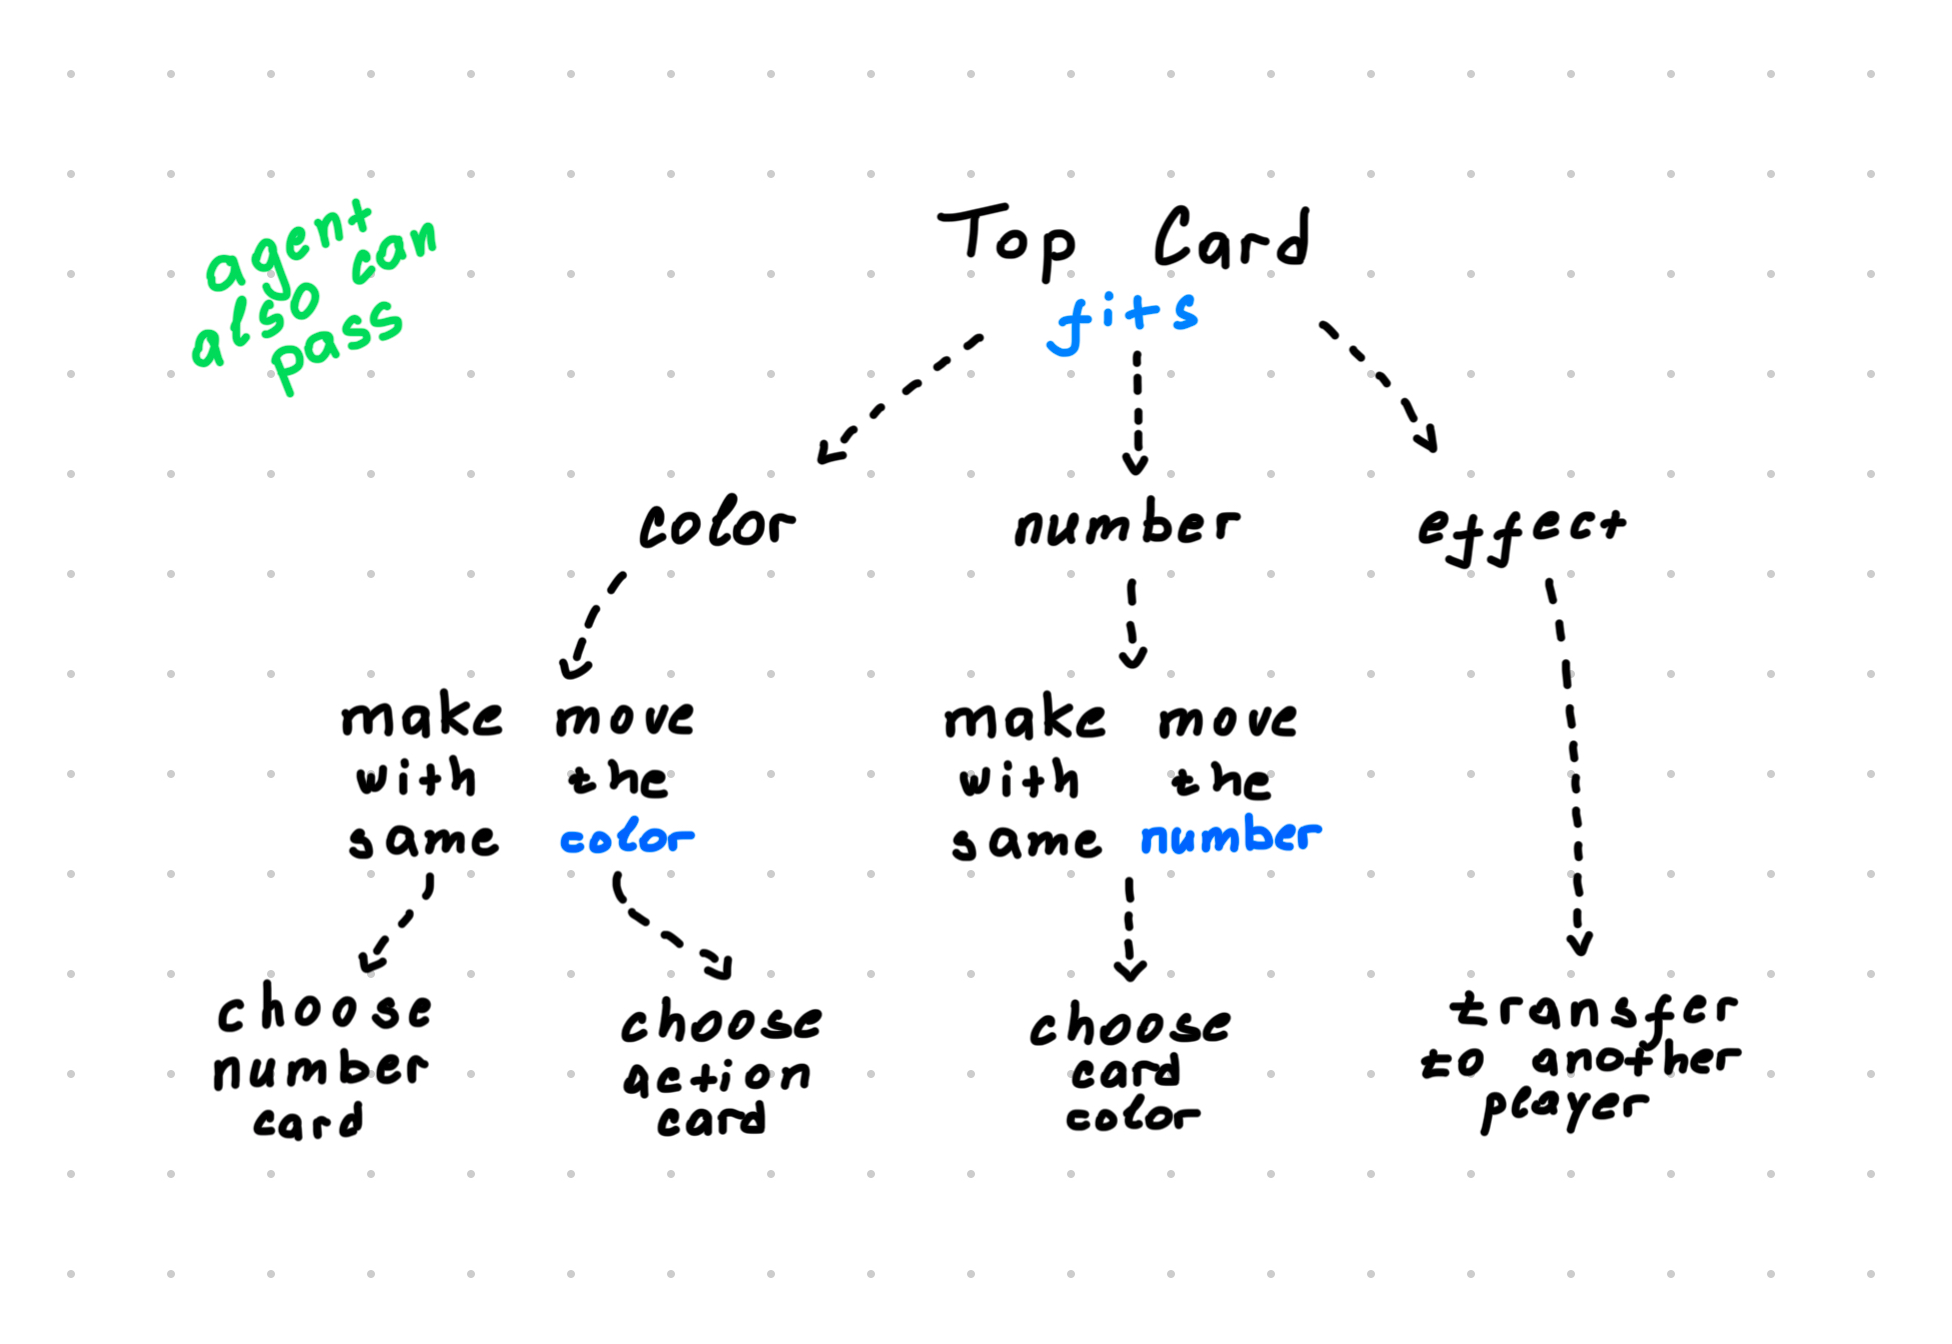 agent
also can
pass
Top Card
fits
color
number
effect
make move
with the
same color
make move
with the
same number
choose
number
card
choose
action
card
choose
card
color
transfer
to another
player